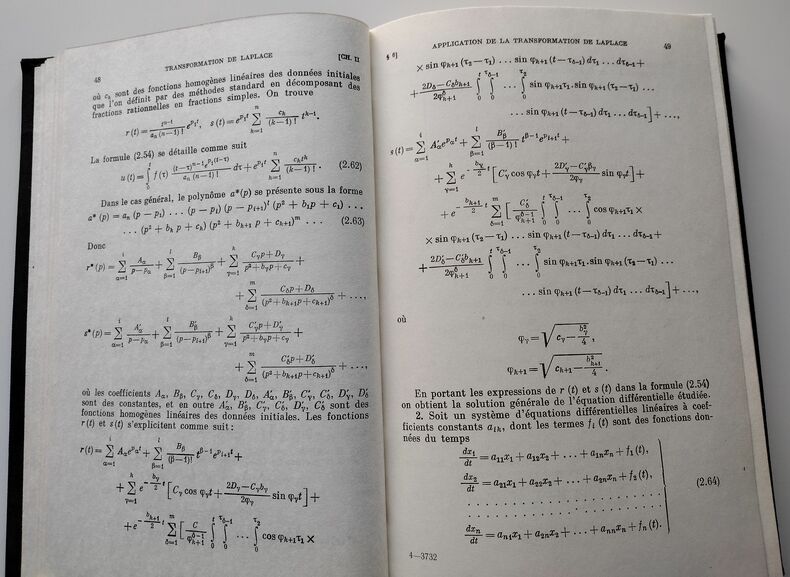 48 TRANSFORMATION DE LAPLACE [CH. II
où c_k sont des fonctions homogènes linéaires des données initiales
que l'on définit par des méthodes standard en décomposant des
fractions rationnelles en fractions simples. On trouve
r (t) = t^{n-1}/(a_n (n-1)!) e^{p_1 t}, s (t) = e^{p_1 t} ∑_{k=1}^{n} c_k/(k-1)! t^{k-1}.
La formule (2.54) se détaille comme suit
u (t) = ∫_0^t f (τ) (t-τ)^{n-1} e^{p_1(t-τ)}/(a_n (n-1)!) dτ + e^{p_1 t} ∑_{k=1}^{n} c_k t^k/(k-1)! . (2.62)
Dans le cas général, le polynôme a* (p) se présente sous la forme
a* (p) = a_n (p — p_1) ... (p — p_l) (p — p_{l+1})^l (p² + b_1p + c_1) ...
... (p² + b_k p + c_k) (p² + b_{k+1} p + c_{k+1})^m ... (2.63)
Donc
r* (p) = ∑_{α=1}^{i} A_α/(p — p_α) + ∑_{β=1}^{l} B_β/(p — p_{i+1})^β + ∑_{γ=1}^{k} (C_γp + D_γ)/(p² + b_γp + c_γ) +
+ ∑_{δ=1}^{m} (C_δp + D_δ)/(p² + b_{k+1}p + c_{k+1})^δ + ...,
s* (p) = ∑_{α=1}^{i} A'_α/(p — p_α) + ∑_{β=1}^{l} B'_β/(p — p_{i+1})^β + ∑_{γ=1}^{k} (C'_γp + D'_γ)/(p² + b_γp + c_γ) +
+ ∑_{δ=1}^{m} (C'_δp + D'_δ)/(p² + b_{k+1}p + c_{k+1})^δ + ...,
où les coefficients A_α, B_β, C_γ, C_δ, D_γ, D_δ, A'_α, B'_β, C'_γ, C'_δ, D'_γ, D'_δ
sont des constantes, et en outre A'_α, B'_β, C'_γ, D'_γ, C'_δ sont des
fonctions homogènes linéaires des données initiales. Les fonctions
r (t) et s (t) s'explicitent comme suit :
r (t) = ∑_{α=1}^{i} A_α e^{p_α t} + ∑_{β=1}^{l} B_β/(β-1)! t^{β-1} e^{p_{i+1} t} +
+ ∑_{γ=1}^{k} e^{-b_γ/2 t} [C_γ cos φ_γt + (2D_γ — C_γb_γ)/(2φ_γ) sin φ_γt] +
+ e^{-b_{k+1}/2 t} ∑_{δ=1}^{m} [C/φ_{k+1}^{δ-1} ∫_0^t ∫_0^{τ_{δ-1}} ... ∫_0^{τ_2} cos φ_{k+1}τ_1 ×
§ 6] APPLICATION DE LA TRANSFORMATION DE LAPLACE 49
× sin φ_{k+1} (τ_2 — τ_1) ... sin φ_{k+1} (t — τ_{δ-1}) dτ_1 ... dτ_{δ-1} +
+ (2D_δ — C_δb_{k+1})/(2φ_{k+1}^δ) ∫_0^t ∫_0^{τ_{δ-1}} ... ∫_0^{τ_2} sin φ_{k+1}τ_1 . sin φ_{k+1} (τ_2 — τ_1) ...
... sin φ_{k+1} (t — τ_{δ-1}) dτ_1 ... dτ_{δ-1}] + ...,
s (t) = ∑_{α=1}^{i} A'_α e^{p_α t} + ∑_{β=1}^{l} B'_β/(β-1)! t^{β-1} e^{p_{i+1} t} +
+ ∑_{γ=1}^{k} e^{-b_γ/2 t} [C'_γ cos φ_γt + (2D'_γ — C'_γβ_γ)/(2φ_γ) sin φ_γt] +
+ e^{-b_{k+1}/2 t} ∑_{δ=1}^{m} [C'_δ/φ_{k+1}^{δ-1} ∫_0^t ∫_0^{τ_{δ-1}} ... ∫_0^{τ_2} cos φ_{k+1}τ_1 ×
× sin φ_{k+1} (τ_2 — τ_1) ... sin φ_{k+1} (t — τ_{δ-1}) dτ_1 ... dτ_{δ-1} +
+ (2D'_δ — C'_δb_{k+1})/(2φ_{k+1}^δ) ∫_0^t ∫_0^{τ_{δ-1}} ... ∫_0^{τ_2} sin φ_{k+1}τ_1 . sin φ_{k+1} (τ_2 — τ_1) ...
... sin φ_{k+1} (t — τ_{δ-1}) dτ_1 ... dτ_{δ-1}] + ...,
où
φ_γ = √(c_γ — b_γ²/4) ,
φ_{k+1} = √(c_{k+1} — b²_{k+1}/4) .
En portant les expressions de r (t) et s (t) dans la formule (2.54)
on obtient la solution générale de l'équation différentielle étudiée.
2. Soit un système d'équations différentielles linéaires à coef-
ficients constants a_{ik}, dont les termes f_i (t) sont des fonctions don-
nées du temps
dx_1/dt = a_{11}x_1 + a_{12}x_2 + ... + a_{1n}x_n + f_1 (t),
dx_2/dt = a_{21}x_1 + a_{22}x_2 + ... + a_{2n}x_n + f_2 (t), (2.64)
. . . . . . . . . . . . . . . . . . . . .
dx_n/dt = a_{n1}x_1 + a_{n2}x_2 + ... + a_{nn}x_n + f_n (t).
4—3732